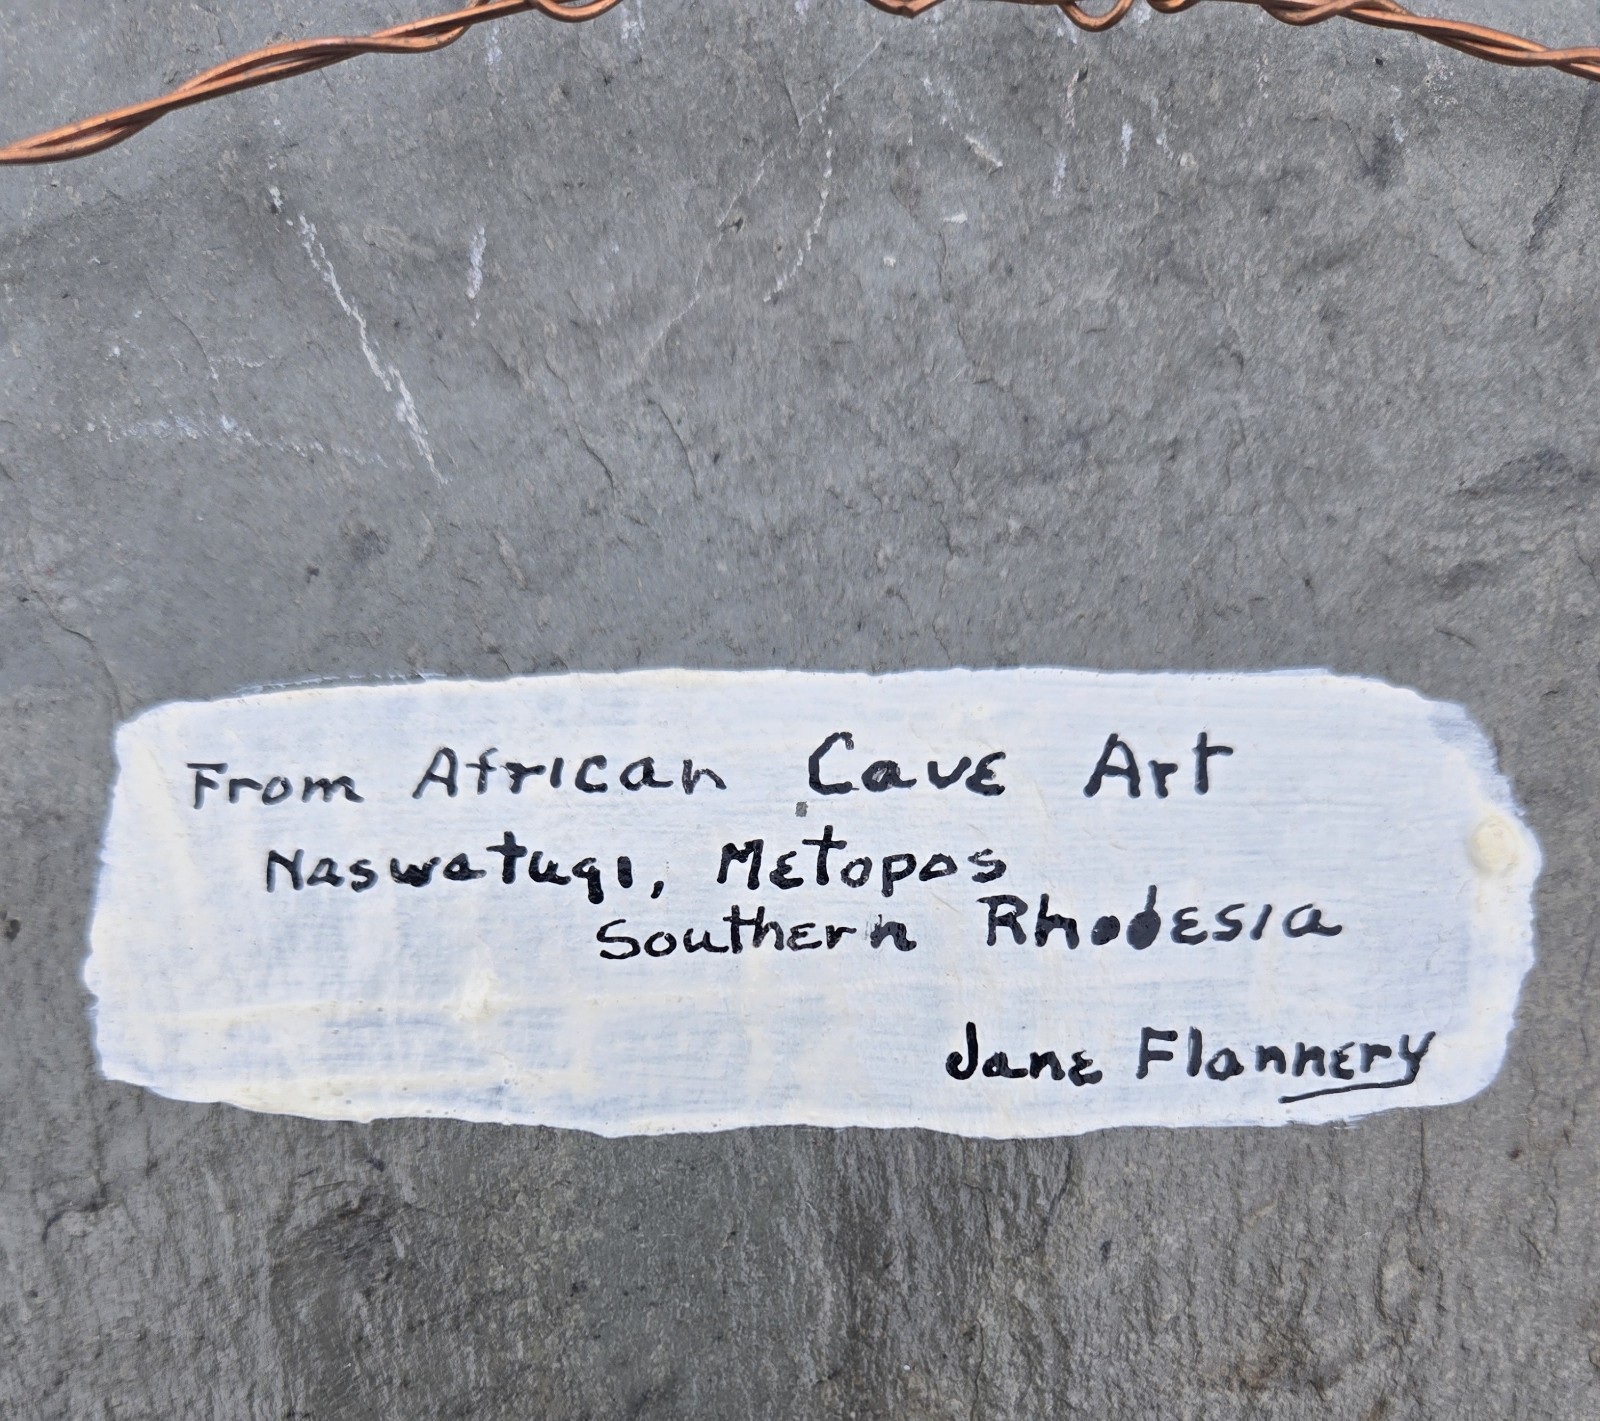 From African Cave Art
Naswatugi, Metopos
Southern Rhodesia
Jane Flannery